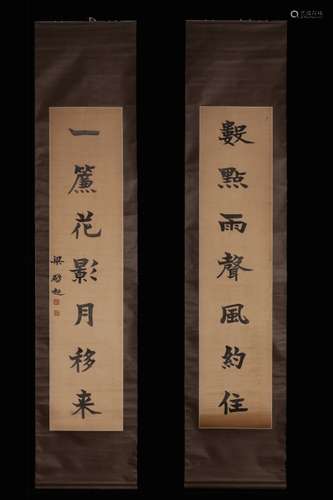 數點雨聲風約住
一簾花影月移来
梁啓超